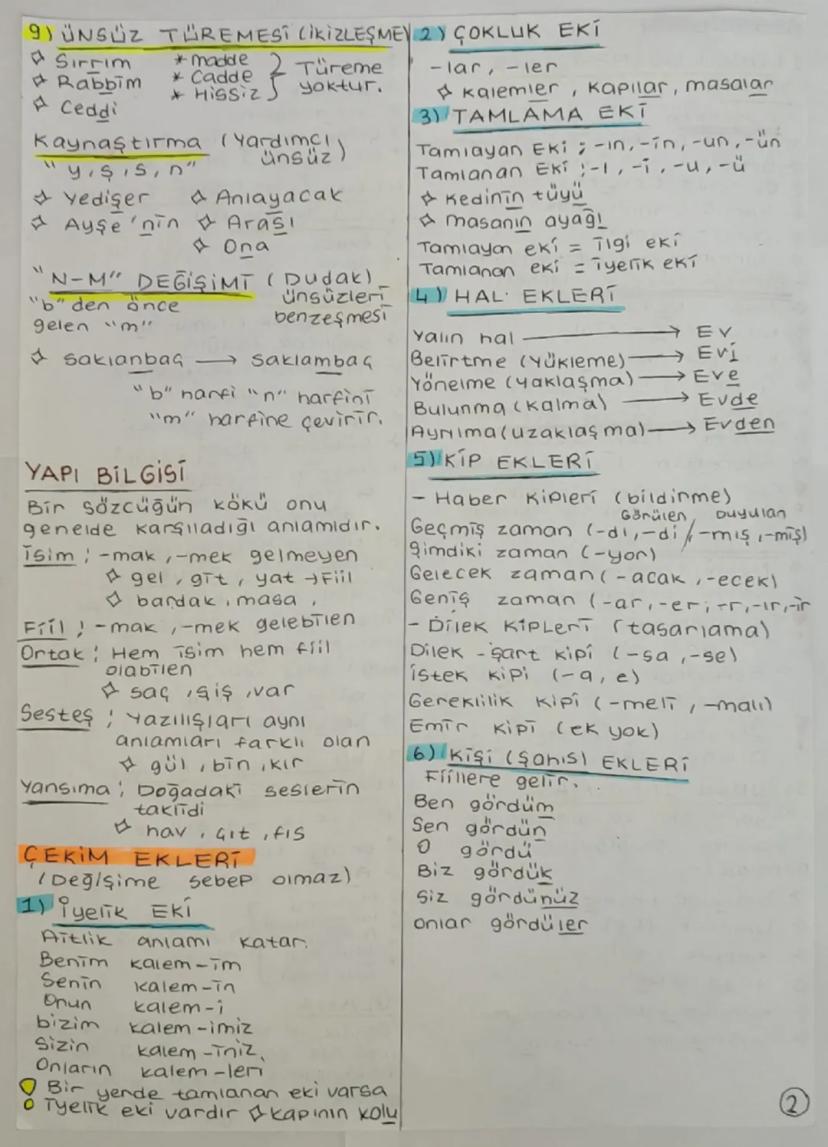 9) ÜNSÜZ TÜREMESİ (İKİZLEŞME)
✧ Sırrım * madde } Türeme
✧ Rabbim * Cadde yoktur.
✧ Ceddi * Hissiz
Kaynaştırma (Yardımcı ünsüz)
"y, ş, s, n"
✧ Yedişer ✧ Anlayacak
✧ Ayşe'nin ✧ Arası
✧ Ona
"N-M" DEĞİŞİMİ (Dudak ünsüzleri benzeşmesi)
"b" den önce
gelen "m"
✧ saklanbaç → saklambaç
"b" harfi "n" harfini
"m" harfine çevirir.
YAPI BİLGİSİ
Bir sözcüğün kökü onu
genelde karşıladığı anlamıdır.
İsim : -mak, -mek gelmeyen
✧ gel, git, yat → Fiil
✧ bardak, masa,
Fiil : -mak, -mek gelebilen
Ortak : Hem isim hem fiil
olabilen
✧ saç, şiş, var
Sesteş : Yazılışları aynı
anlamları farklı olan
✧ gül, bin, kır
Yansıma : Doğadaki seslerin
taklidi
✧ hav, çıt, fıs
ÇEKİM EKLERİ
(Değişime sebep olmaz)
1) İyelik EKİ
Aitlik anlamı katar.
Benim kalem-im
Senin kalem-in
Onun kalem-i
bizim kalem-imiz
Sizin kalem-iniz
Onların kalem-leri
! Bir yerde tamlanan eki varsa
iyelik eki vardır ✧ kapının kolu
2) ÇOKLUK EKİ
-lar, -ler
✧ kalemler, kapılar, masalar
3) TAMLAMA EKİ
Tamlayan Eki ; -ın, -in, -un, -ün
Tamlanan Eki : -ı, -i, -u, -ü
✧ Kedinin tüyü
✧ masanın ayağı
Tamlayan eki = ilgi eki
Tamlanan eki = iyelik eki
4) HAL EKLERİ
Yalın hal → Ev
Belirtme (Yükleme) → Evi
Yönelme (yaklaşma) → Eve
Bulunma (kalma) → Evde
Ayrılma (uzaklaşma) → Evden
5) KİP EKLERİ
- Haber Kipleri (bildirme)
Görülen Duyulan
Geçmiş zaman (-dı, -di / -mış, -miş)
Şimdiki zaman (-yor)
Gelecek zaman (-acak, -ecek)
Geniş zaman (-ar, -er, -r, -ır, -ir
- Dilek Kipleri (tasarlama)
Dilek - şart kipi (-sa, -se)
İstek kipi (-a, e)
Gereklilik kipi (-meli, -malı)
Emir kipi (ek yok)
6) Kişi (şahıs) EKLERİ
Fiillere gelir.
Ben gördüm
Sen gördün
O gördü
Biz gördük
Siz gördünüz
Onlar gördüler
2